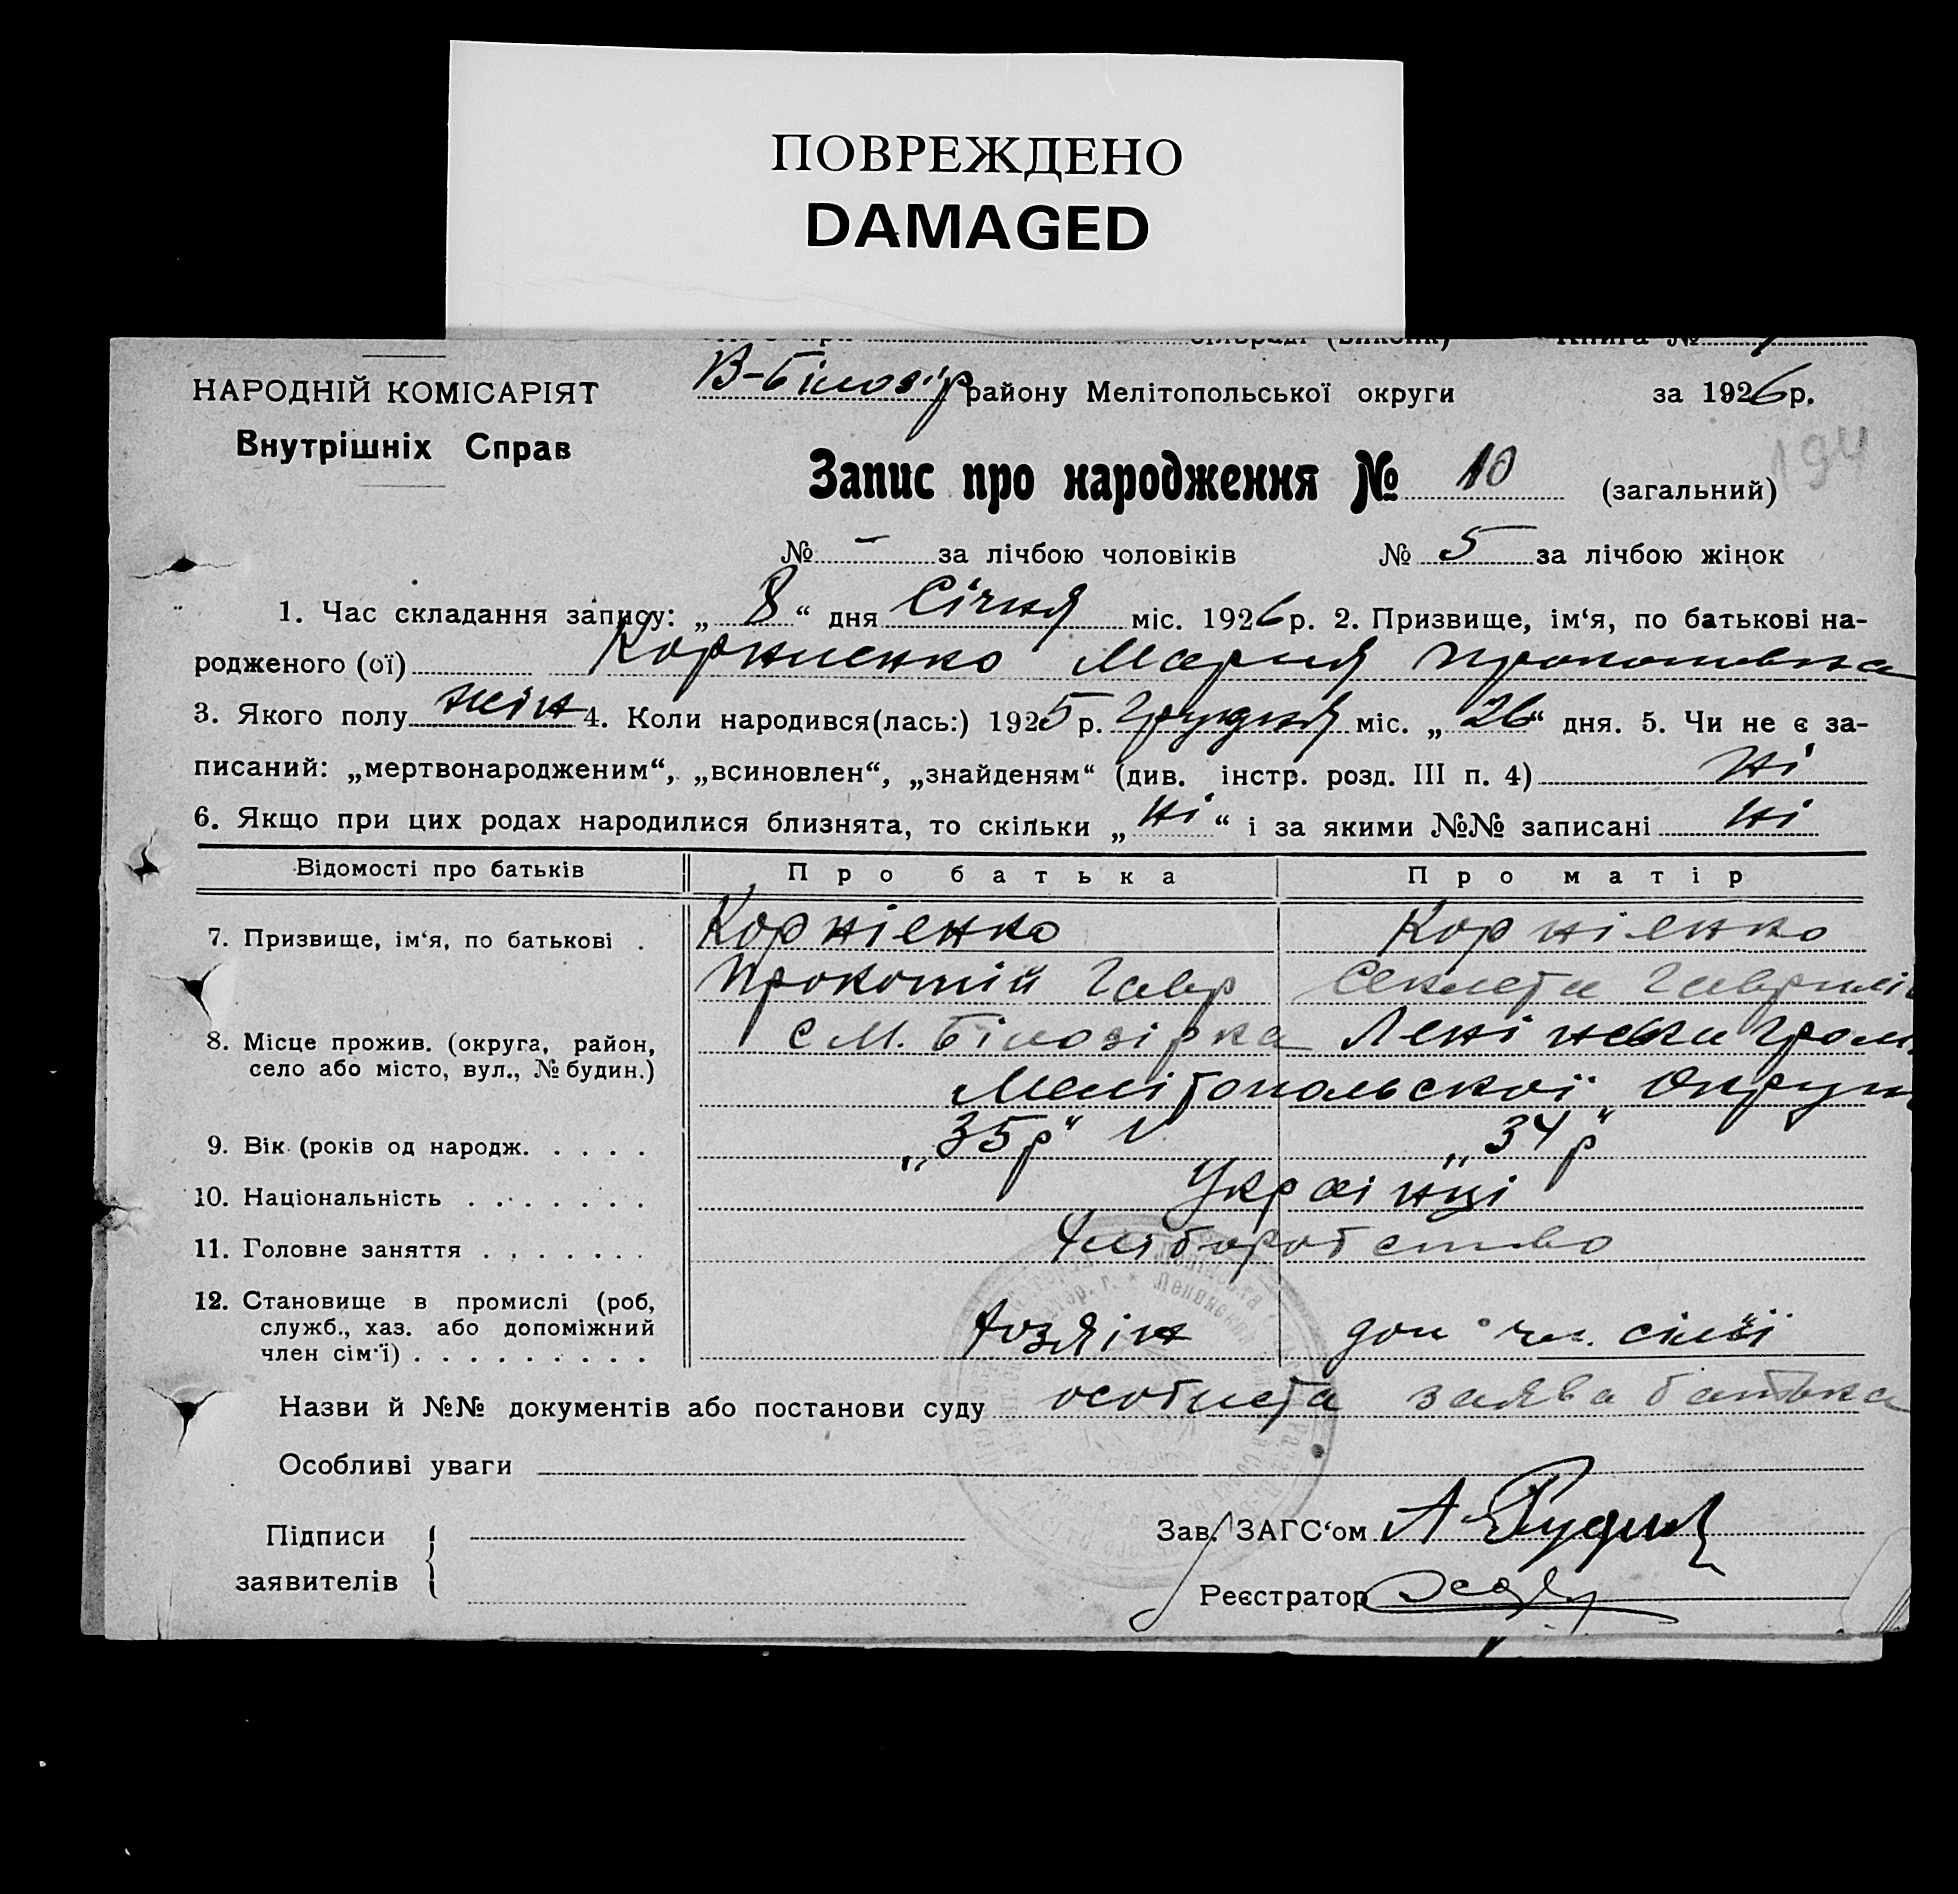 ПОВРЕЖДЕНО
DAMAGED
Книга №
НАРОДНІЙ КОМІСАРІЯТ
Внутрішніх Справ
В-Білозір району Мелітопольської округи за 1926 р.
194
Запис про народження № 10 (загальний)
№ — за лічбою чоловіків № 5 за лічбою жінок
1. Час складання запису: „ 8 “ дня Січня міс. 1926 р. 2. Призвище, ім‘я, по батькові на-
родженого (ої) Корниенко Мария Прокоповна
3. Якого полу жін 4. Коли народився(лась:) 1925 р. Грудня міс. „ 26 “ дня. 5. Чи не є за-
писаний: „мертвонародженим“, „всиновлен“, „знайденям“ (див. інстр. розд. III п. 4) Ні
6. Якщо при цих родах народилися близнята, то скільки „ Ні “ і за якими №№ записані Ні
Відомості про батьків Про батька Про матір
7. Призвище, ім‘я, по батькові . Корніенко Корніенко
Прокопій Гавр Секлета Гаврилі
8. Місце прожив. (округа, район,
село або місто, вул., № будин.)
с М. Білозірка Ленінськи Гром
Мелітопольскої Округи
9. Вік (років од народж. . . . . „35р“ „34р“
10. Національність . . . . . . . Українці
11. Головне заняття . . . . . . . Хліборобство
12. Становище в промислі (роб,
служб., хаз. або допоміжний
член сім‘ї) . . . . . . . . . Хозяін доп чл. сімї
Назви й №№ документів або постанови суду особиста заява батька
Особливі уваги
Підписи
заявителів
Зав. ЗАГС‘ом
Реєстратор